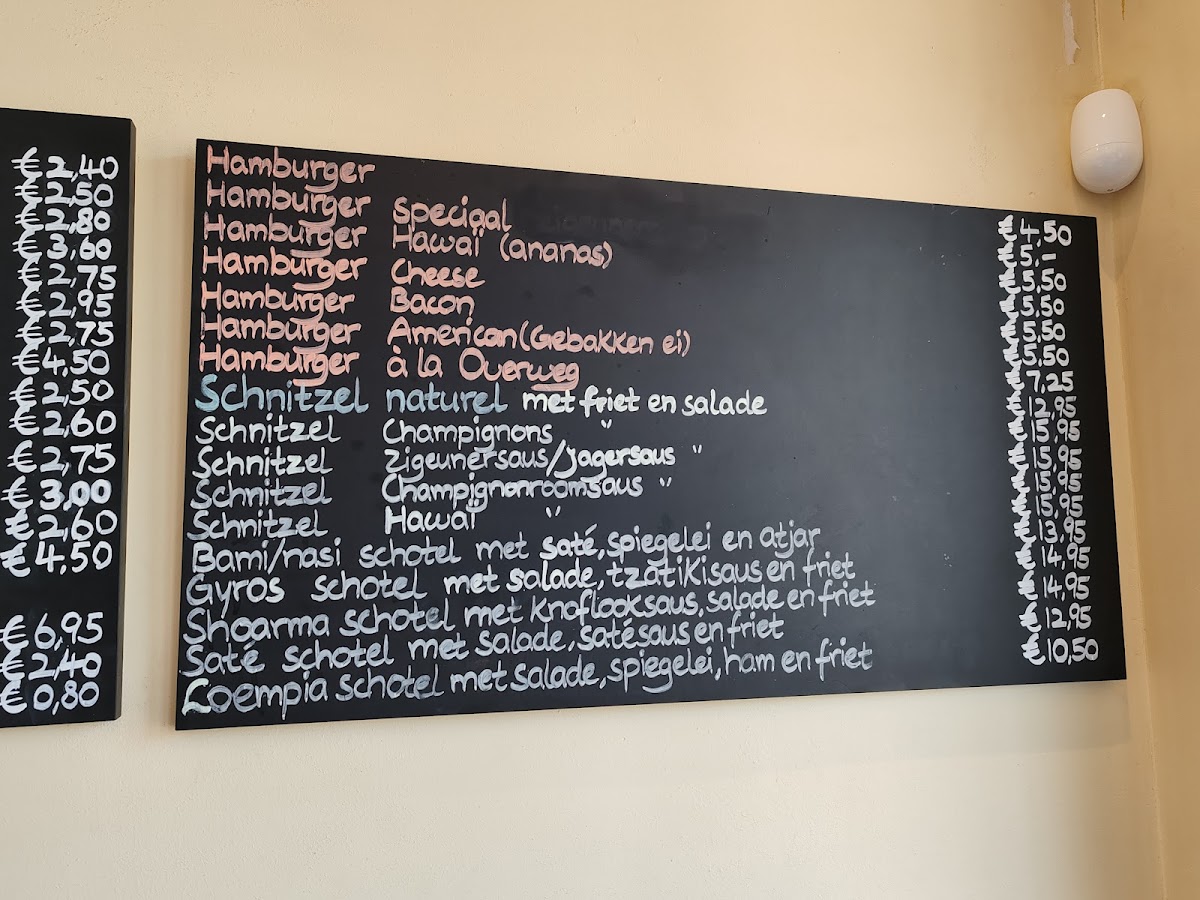 € 2,40
€ 2,50
€ 2,80
€ 3,60
€ 2,75
€ 2,95
€ 2,75
€ 4,50
€ 2,50
€ 2,60
€ 2,75
€ 3,00
€ 2,60
€ 4,50
€ 6,95
€ 2,40
€ 0,80
Hamburger € 4,50
Hamburger Speciaal € 5,-
Hamburger Hawaï (ananas) € 5,50
Hamburger Cheese € 5,50
Hamburger Bacon € 5,50
Hamburger American (Gebakken ei) € 5,50
Hamburger à la Overweg € 7,25
Schnitzel naturel met friet en salade € 12,95
Schnitzel Champignons " € 15,95
Schnitzel Zigeunersaus/jagersaus " € 15,95
Schnitzel Champignonroomsaus " € 15,95
Schnitzel Hawaï " € 15,95
Bami/nasi schotel met saté, spiegelei en atjar € 13,95
Gyros schotel met salade, tzatikisaus en friet € 14,95
Shoarma schotel met knoflooksaus, salade en friet € 14,95
Saté schotel met salade, satésaus en friet € 12,95
Loempia schotel met salade, spiegelei, ham en friet € 10,50